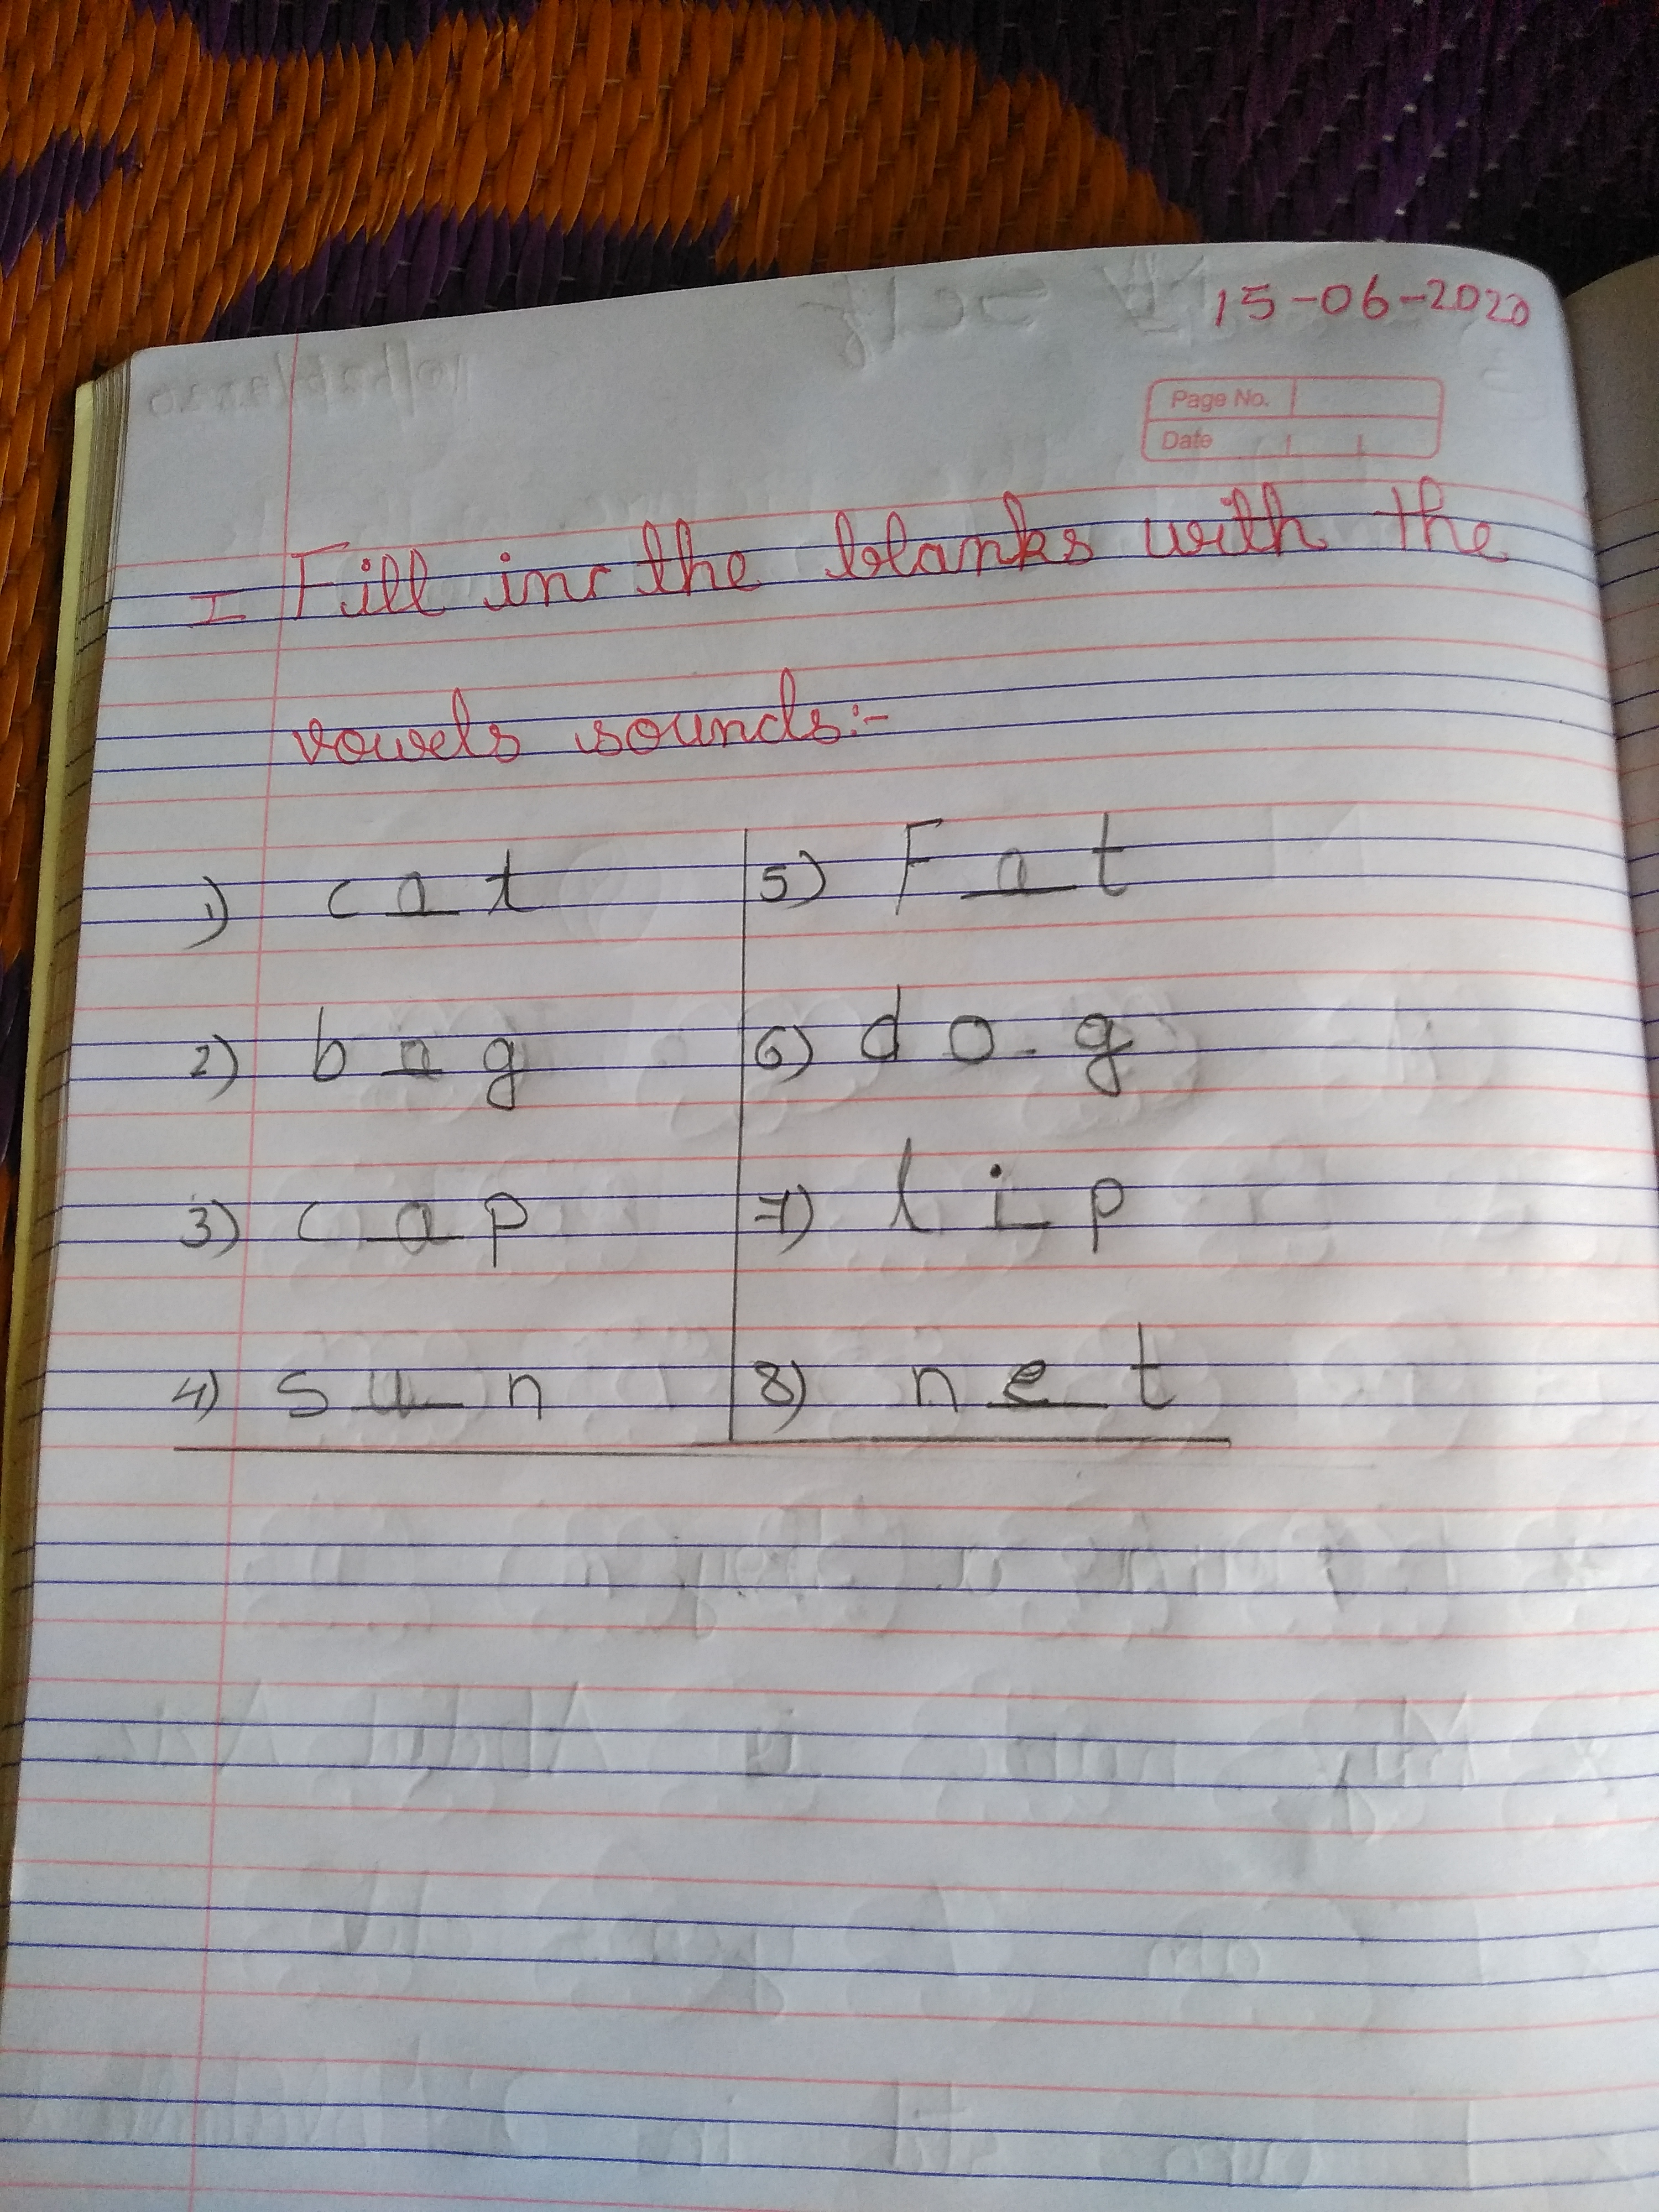 15-06-2020
Page No.
Date
I Fill in the blanks with the
vowels sounds:-
1) c a t
2) b a g
3) c a p
4) s u n
5) F a t
6) d o g
7) l i p
8) n e t